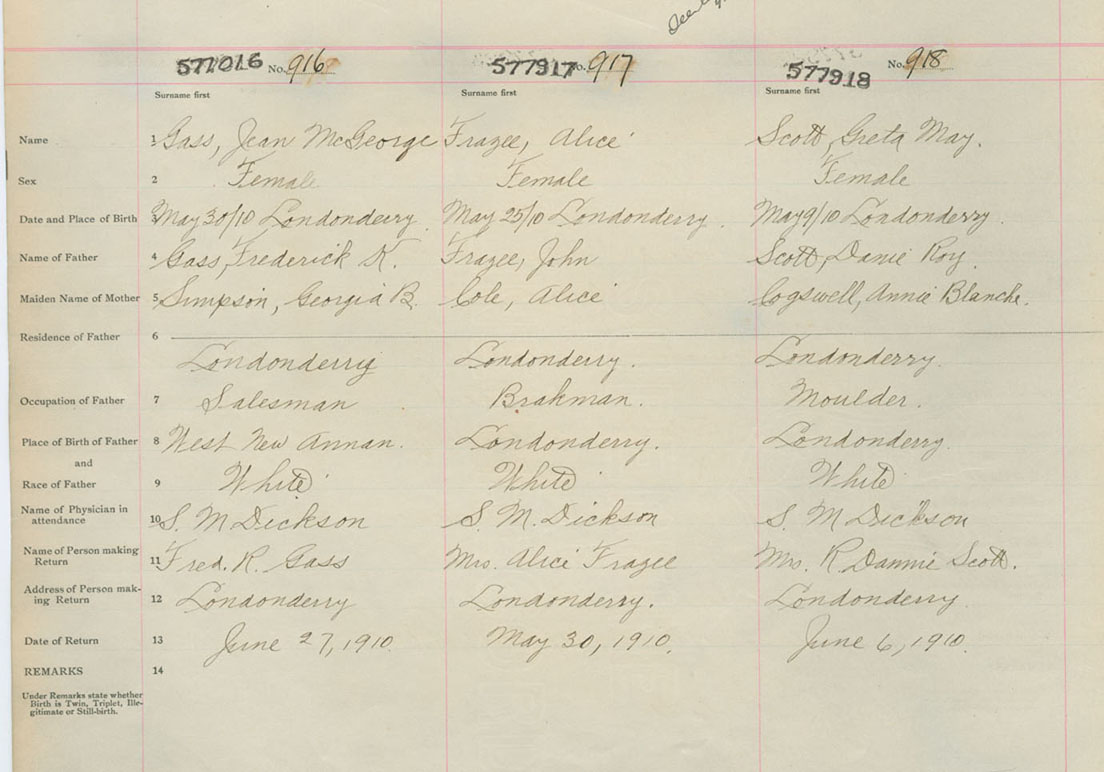 577016 No. 916 577917 No. 917 577918 No. 918
Surname first Surname first Surname first
Name 1 Gass, Jean McGeorge Frazee, Alice Scott, Greta May.
Sex 2 Female Female Female
Date and Place of Birth 3 May 30/10 Londonderry. May 25/10 Londonderry. May 9/10 Londonderry.
Name of Father 4 Gass, Frederick K. Frazee, John Scott, Danie Roy.
Maiden Name of Mother 5 Simpson, Georgia B. Cole, Alice Cogswell, Annie Blanche.
Residence of Father 6
Londonderry Londonderry. Londonderry.
Occupation of Father 7 Salesman Brakman. Moulder.
Place of Birth of Father 8 West New Annan. Londonderry. Londonderry.
and
Race of Father 9 White White White
Name of Physician in
attendance 10 S. M Dickson S. M. Dickson S. M Dickson
Name of Person making
Return 11 Fred. R. Gass Mrs. Alice Frazee Mrs. R Dannie Scott.
Address of Person mak-
ing Return 12 Londonderry Londonderry. Londonderry.
Date of Return 13 June 27, 1910. May 30, 1910. June 6, 1910.
REMARKS 14
Under Remarks state whether
Birth is Twin, Triplet, Ille-
gitimate or Still-birth.